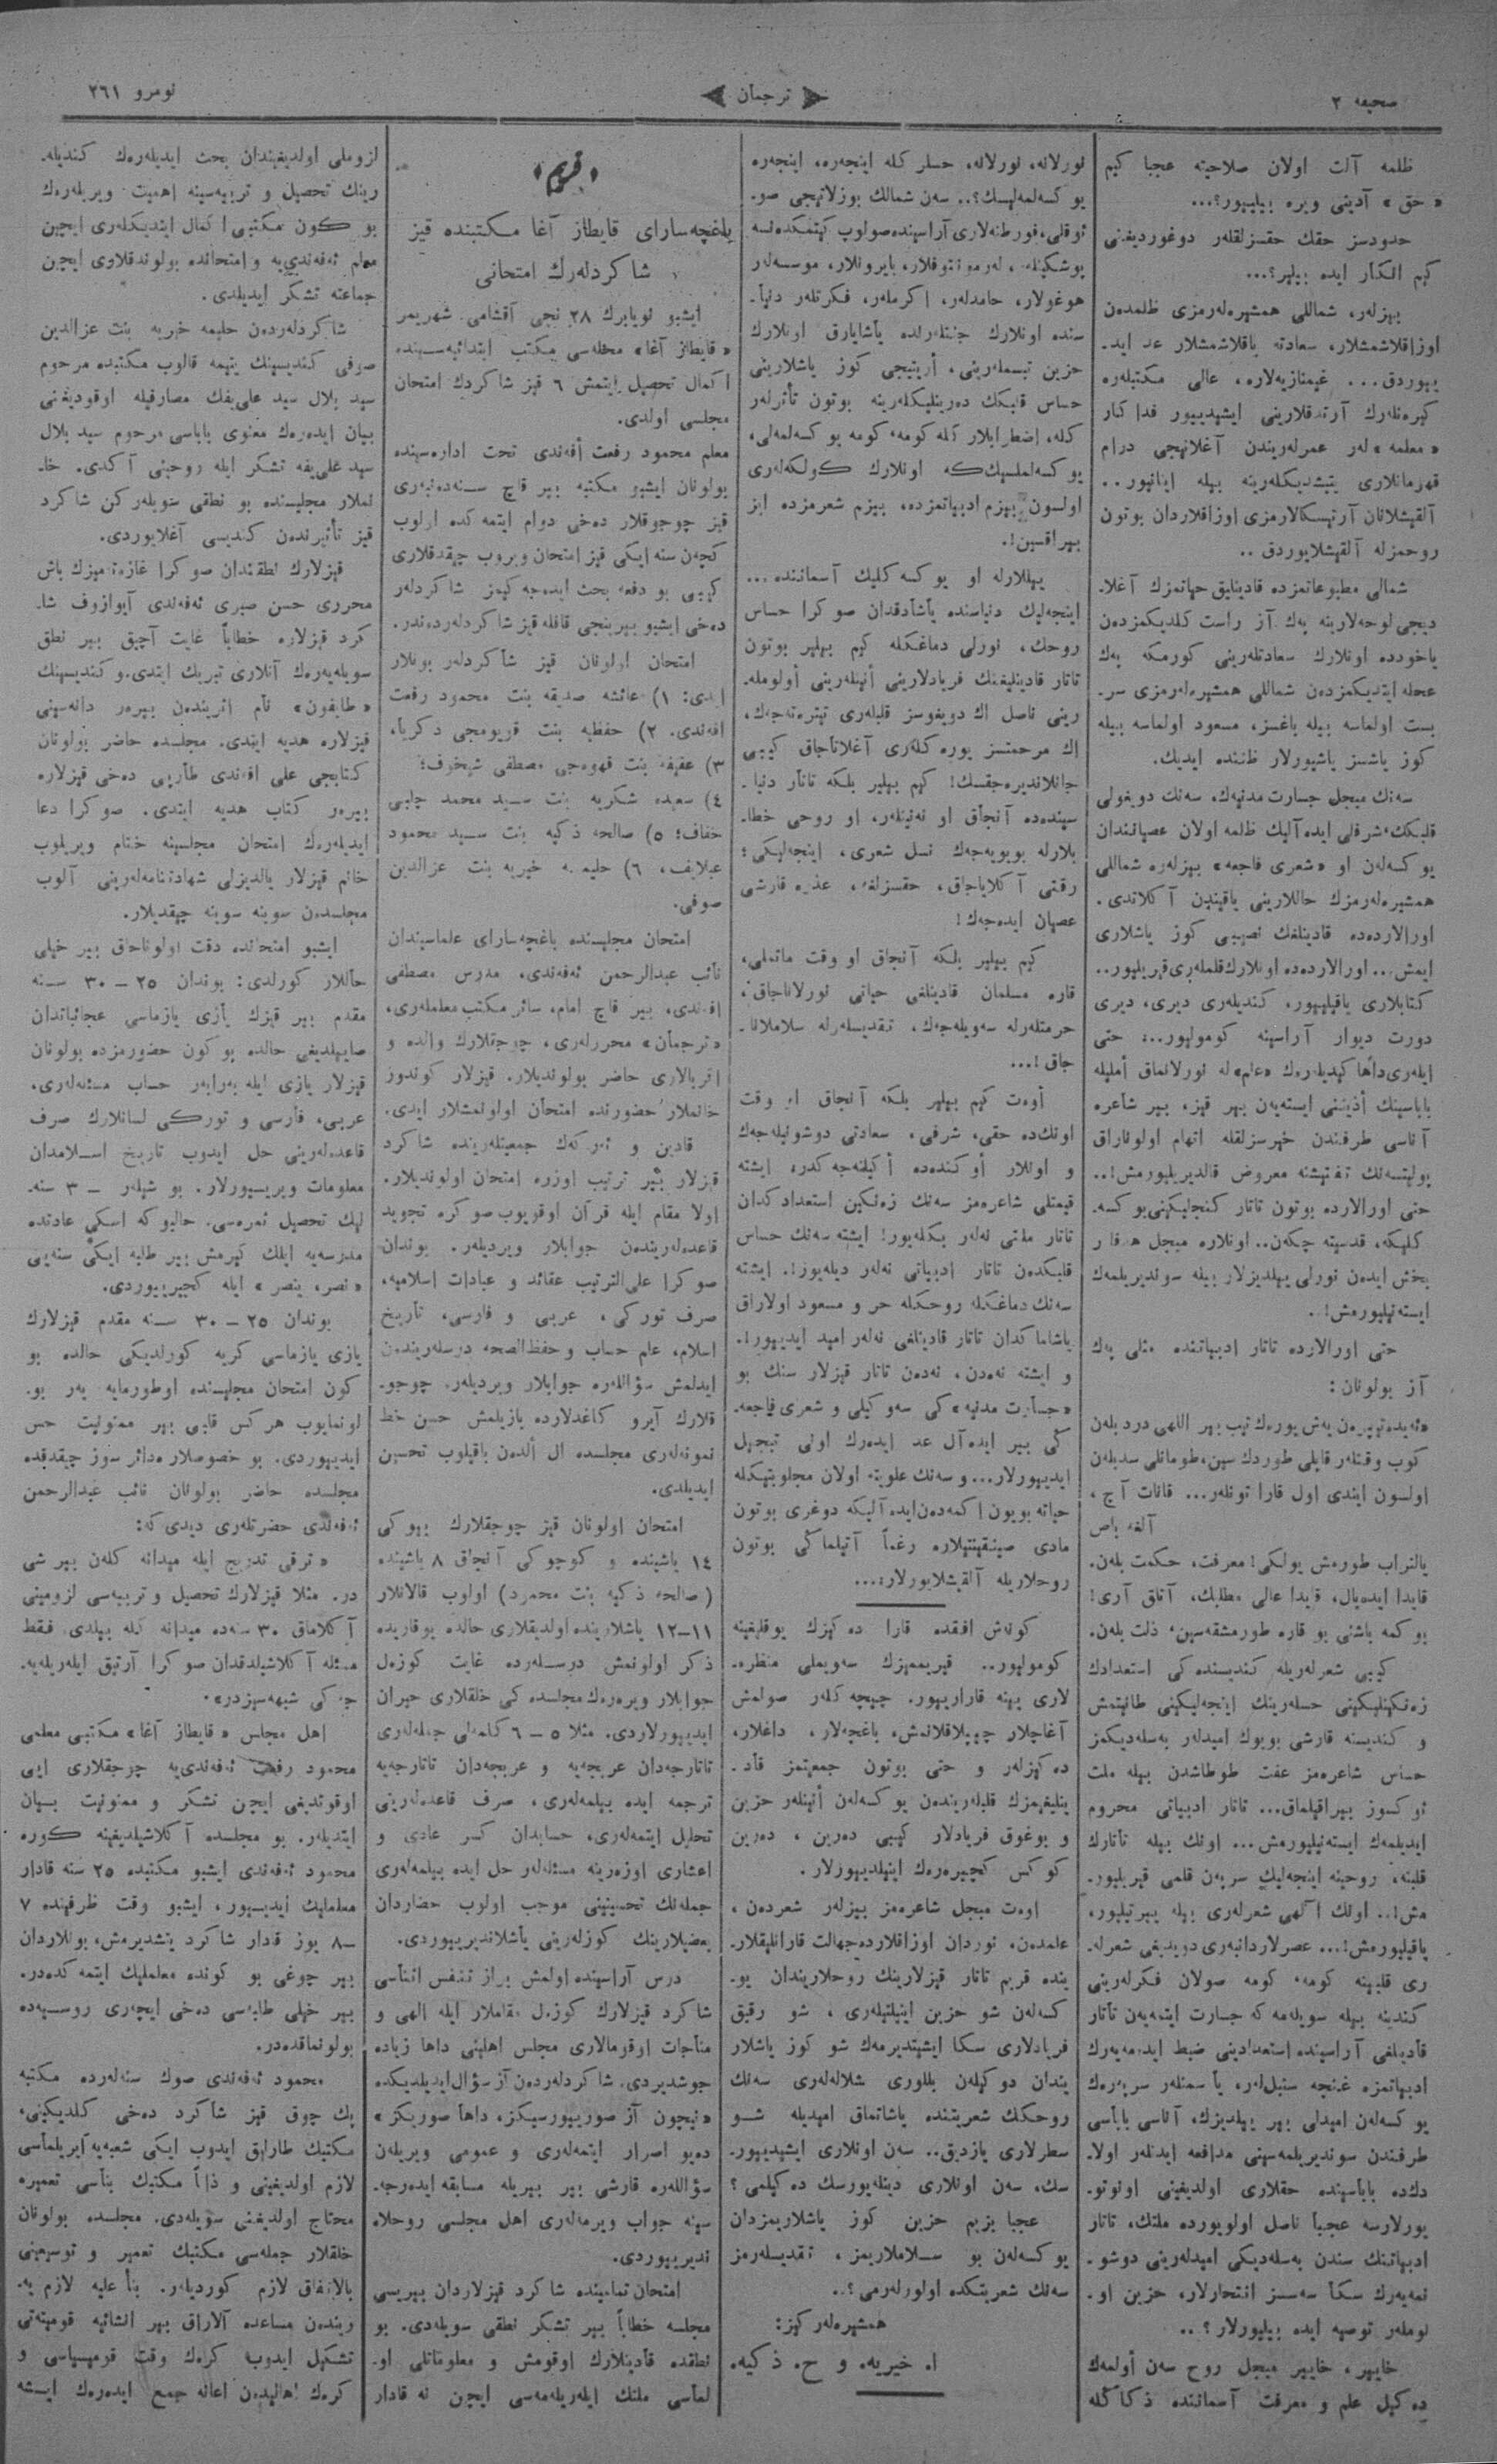 صحیفه ٢
ترجمان
نومرو ٢٦١
ظلمه آلت اولان صلاحیته عجبا کیم
«حق» آدینی ویره بیلیور؟...
حدودسز حقك حقسزلقلەر دوغوردیغنی
کیم انکار ایده بیلیر؟...
بیزلەر، شماللی همشیرەلەرمزی ظلمدەن
اوزاقلاشمشلار، سعادته یاقلاشمشلار عد اید-
ییوردق... غیمنازیەلاره، عالی مکتبلەره
کیرەنلەرك آرتدقلارینی ایشیدییور فداکار
«معلمه»لەر عمرلەریندن آغلانیجی درام
قهرمانلاری یتیشدیکلەرینه بیله اینانیور..
آلقیشلانان آرتیسکالارمزی اوزاقلاردان بوتون
روحمزله آلقیشلایوردق..
شمالی مطبوعاتمزده قادینلیق حیاتمزك آغلا-
دیجی لوحەلارینه پەك آز راست کلدیکمزدەن
یاخود اونلارك سعادتلەرینی کورمکه پەك
عجله ایتدیکمزدەن شماللی همشیرەلەرمزی سر-
بست اولماسه بیله باغسز، مسعود اولماسه بیله
کوز یاشسز یاشیورلار ظننده ایدیك.
سەنك مبجل جسارت مدنیەك، سەنك دویغولی
قلبكك شرفلی ایدەآلیك ظلمه اولان عصیانندان
یوکسەلەن او «شعری فاجعه» بیزلەره شماللی
همشیرەلەرمزك حاللارینی یاقیندن آکلاتدی.
اورالاردەده قادینلغك نصیبی کوز یاشلاری
ایمش... اورالاردەده اونلارك قلملەری قیریلیور..
کتابلاری یاقیلییور، کندیلەری دیری، دیری
دورت دیوار آراسینه کومولیور..: حتی
ایلەری داها کیدیلەرك «علم»له نورلانماق أملیله
باباسینك أذیننی ایستەیەن بیر قیز، بیر شاعره
آناسی طرفندن خیرسزلقله اتهام اولوناراق
پولیتسەنك تفتیشنه معروض قالدیریلیورمش!..
حتی اورالارده بوتون تاتار کنجلیکینی یوکسه-
کلیکه، قدسیته چکەن.. اونلاره مبجل
بخش ایدەن نورلی ییلدیزلار بیله سوندیریلمەك
ایستەنیلیورمش!.
حتی اورالارده تاتار ادبیاتنده مثلی پەك
آز بولونان:
کوب وقتلەر قایلی طوردك سین، طومانلی سدیلەن
اولسون ایندی اول قارا تونلەر... قانات آچ،
آلغه باص
یالتراب طورەش یولکی! معرفت، حکمت بلەن.
قایدا ایدەیال، قایدا عالی مطلبك، آتاق آری!
بوکمه باشنی بو قاره طورمشقەسین، ذلت بلەن.
کیبی شعرلەریله کندیسندەکی استعدادك
زەنکینلیکینی حسلەرینك اینجەلیکینی طانیتمش
و کندیسنه قارشی بویوك امیدلەر بەسلەدیکمز
حساس شاعرەمز عفت طوطاشدن بیله ملت
ئوکسوز بیراقیلماق... تاتار ادبیاتی محروم
ایدیلمەك ایستەنیلیورمش... اونك بیله تاتارك
قلبنه، روحینه اینجەلیك سرپەن قلمی قیریلیور-
مش!.. اونك آلهی شعرلەری بیله ییرتیلیور،
یاقیلیورمش!... عصرلاردانبەری دویدیغی شعرلە-
ری قلبینه کومه، کومه صولان فکرلەرینی
کندینه بیله سویلەمەکه جسارت ایتمەیەن تاتار
قادینلغی آراسینده استعدادینی ضبط ایدەمەیەرك
ادبیاتمزه غنچه سنبللەر، یاسمنلەر سرپەرەك
یوکسەلەن امیدلی بیر ییلدیزك، آناسی باباسی
طرفندن سوندیریلمەسینی مدافعه ایدنلەر اولا-
دكده باباسینده حقلاری اولدیغینی اونوتو-
یورلارسه عجبا ناصل اولویورده ملتك، تاتار
ادبیاتینك سندن بەسلەدیکی امیدلەرینی دوشو-
نمەیەرك سکا سەسسز انتحارلار، حزین او-
لوملەر توصیه ایده بیلیورلار؟..
خاییر، خاییر مبجل روح سەن أولمەك
دەکیل علم و معرفت آسماننده ذکاکله
نورلانه، نورلانه، حسلرکله اینجەره، اینجەره
یوکسەلمەلیسك؟.. سەن شمالك بوزلانیجی صو-
ئوقلی، فورطنەلاری آراسینده صولوب کیتمکدەنسه
هوغولار، حامدلەر، اکرملەر، فکرتلەر دنیا-
سنده اونلارك جنتلەرنده یاشایارق اونلارك
حزین تبسملەرینی، أریتیجی کوز یاشلارینی
حساس قلبكك دەرینلیکلەرینه بوتون تأثرلەر
کله، إضطرابلار کله کومه، کومه یوکسەلمەلی،
یوکسەلملیسك که اونلارك کولکەلەری
اولسون بیزم ادبیاتمزده، بیزم شعرمزده ایز
بیراقسین!.
ییللارله او یوکسەکلیك آسماننده...
اینجەلیك دنیاسنده یاشادقدان صوکرا حساس
روحك، نورلی دماغكله کیم بیلیر بوتون
تاتار قادینلیغنك فریادلارینی أنینلەرینی أولوملە-
رینی ناصل اك دویغوسز قلبلەری تیترەتەجەك،
اك مرحمتسز یورەکلەری آغلاتاجاق کیبی
جانلاندیرەجقسك! کیم بیلیر بلکه تاتار دنیا-
سیندەده آنجاق او نەنینلەر، او روحی خطا-
بلارله بویویەجەك نسل شعری، اینجەلیکی؛
رقتی آکلایاجاق، حقسزلغه، عذره قارشی
عصیان ایدەجەك!
کیم بیلیر بلکه آنجاق او وقت ماتملی،
قاره مسلمان قادینلغی حیاتی نورلاناجاق،
حرمتلەرله سەویلەجەك، تقدیسلەرله سلاملانا-
جاق!...
أوەت کیم بیلیر بلکه آنجاق او وقت
اونكده حقی، شرفی، سعادتی دوشونیلەجەك
و اونلار أوکندەده أکیلنەجەکدر، ایشته
قیمتلی شاعرەمز سەنك زەنکین استعدادکدان
تاتار ملتی نەلەر بکلەیور! ایشته سەنك حساس
قلبکدەن تاتار ادبیاتی نەلەر دیلەیوز!. ایشته
سەنك دماغكله روحكله حر و مسعود اولاراق
یاشاماکدان تاتار قادینلغی نەلەر امید ایدییور!.
و ایشته نەدەن، نەدەن تاتار قیزلار سنك بو
«جسارت مدنیه»کی سەوکیلی و شعری فاجعه-
کی بیر ایدەآل عد ایدەرك اونی تبجیل
ایدییورلار... و سەنك علویته اولان مجلوبیتكله
حیاته بویون اکمەدەن ایدەآلیکه دوغری بوتون
مادی صیقینتیلاره رغماً آتیلماکی بوتون
روحلاریله آلقیشلایورلار...
کونەش افقده قارا دەکیزك بوقلیغینه
کومولیور.. قیریمیزك سەویملی منظره-
لاری یینه قاراریور. چیچەکلەر صولمش
آغاجلار چیپلاقلانمش، باغچەلار، داغلار،
دەکیزلەر و حتی بوتون جمعیتمز قاد-
ینلیغمزك قلبلەریندەن یوکسەلەن أنینلەر حزین
و بوغوق فریادلار کیبی دەرین، دەرین
کوکس کچیرەرەك اینیلدییورلار.
اوەت مبجل شاعرەمز بیزلەر شعردەن،
علمدەن، نوردان اوزاقلارده جهالت قارانلیقلار-
ینده قریم تاتار قیزلارینك روحلاریندان یو-
کسەلەن شو حزین اینیلتیلەری، شو رقیق
فریادلاری سکا ایشیتدیرمەك شو کوز یاشلار
یندان دوکیلەن بللوری شلالەلەری سەنك
روحكك شعریتنده یاشاتماق امیدیله شو
سطرلاری یازدیق.. سەن اونلاری ایشیدییور-
سك، سەن اونلاری دینلەیورسك دەکیلمی؟
عجبا بزیم حزین کوز یاشلاریمزدان
یوکسەلەن بو سلاملاریمز، تقدیسلەرمز
سەنك شعریتکده اولورلەرمی؟..
همشیرەلەرکیز:
ا. خیریه. و ح. ذکیه.
قریم
باغچەسارای قایطاز آغا مکتبنده قیز
شاکردلەرك امتحانی
ایشبو نویابرك ٢٨ نجی آقشامی شهریمز
«قایطاز آغا» محلەسی مکتب ابتدائیەسینده
اکمال تحصیل ایتمش ٦ قیز شاکردك امتحان
مجلسی اولدی.
معلم محمود رفعت أفەندی تحت ادارەسینده
بولونان ایشبو مکتبه بیر قاچ سنەدنبەری
قیز چوجوقلار دەخی دوام ایتمەکده اولوب
کچەن سنه ایکی قیز امتحان ویروب چیقدقلاری
کیبی بو دفعه بحث ایدەجەکیمز شاکردلەر
دەخی ایشبو بیرینجی قافله قیز شاکردلەردەندر.
امتحان اولونان قیز شاکردلەر بونلار
ایدی: ١) عائشه صدیقه بنت محمود رفعت
افەندی. ٢) حفظیه بنت قویومجی ذکریا،
٣) عفیفه بنت قهوەجی مصطفی شیخوف؛
٤) سعیده شکریه بنت سید محمد چلبی
خفاف؛ ٥) صالحه ذکیه بنت سید محمود
عبلایف، ٦) حلیمه خیریه بنت عزالدین
صوفی.
امتحان مجلسنده باغچەسارای علماسیندان
نائب عبدالرحمن ئەفەندی، مدرس مصطفی
افەندی، بیر قاچ امام، سائر مکتب معلملەری،
«ترجمان» محررلەری، چوجقلارك والده و
اقربالاری حاضر بولوندیلار. قیزلار کوندوز
خانملار حضورنده امتحان اولونمشلار ایدی.
قادین و ئەرکەك جمعیتلەرینده شاکرد
قیزلار بیر ترتیب اوزره امتحان اولوندیلار.
اولا مقام ایله قرآن اوقویوب صوکره تجوید
قاعدەلەریندەن جوابلار ویردیلەر. بوندان
صوکرا علی الترتیب عقائد و عبادات اسلامیه،
صرف تورکی، عربی و فارسی، تأریخ
اسلام، علم حساب و حفظ الصحه درسلەریندەن
ایدلمش سؤاللەره جوابلار ویردیلەر. چوجو-
قلارك آیرو کاغدلارده یازیلمش حسن خط
نمونەلەری مجلسده ال ألدەن باقیلوب تحسین
ایدیلدی.
امتحان اولونان قیز چوجقلارك بیوکی
١٤ یاشینده و کوچوکی آنجاق ٨ یاشینده
(صالحه ذکیه بنت محمود) اولوب قالانلار
١١-١٢ یاشلارینده اولدیقلاری حالده یوقاریده
ذکر اولونمش درسلەرده غایت کوزەل
جوابلار ویرەرەك مجلسدەکی خلقلاری حیران
ایدییورلاردی. مثلا ٥ - ٦ کلمەلی جملەلەری
تاتارجەدان عربجەیه و عربجەدان تاتارجەیه
ترجمه ایده بیلمەلەری، صرف قاعدەلەرینی
تحلیل ایتمەلەری، حسابدان کسر عادی و
اعشاری اوزەرینه مسئلەلەر حل ایده بیلمەلەری
جملەنك تحسینینی موجب اولوب حضاردان
بعضیلارینك کوزلەرینی یاشلاندیرییوردی.
درس آراسینده اولمش براز تنفس اثناسی
شاکرد قیزلارك کوزەل مقاملار ایله الهی و
مناجات اوقومالاری مجلس اهلینی داها زیاده
جوشدیردی. شاکردلەردەن آز سؤال ایدیلدیکده
«نیچون آز صورییورسیکز، داها صوریکز»
دەیو اصرار ایتمەلەری و عمومی ویریلەن
سؤاللەره قارشی بیر بیریله مسابقه ایدەرجە-
سینه جواب ویرمەلەری اهل مجلسی روحلا-
ندیرییوردی.
امتحان تمامینده شاکرد قیزلاردان بیریسی
مجلسه خطاباً بیر تشکر نطقی سویلەدی. بو
نطقده قادینلارك اوقومش و معلوماتلی او-
لماسی ملتك ایلەریلەمەسی ایچون نه قادار
لزوملی اولدیغیندان بحث ایدیلەرەك کندیلە-
رینك تحصیل و تربیەسینه اهمیت ویریلەرەك
بو کون مکتبی اکمال ایتدیکلەری ایچین
معلم ئەفەندییه و امتحانده بولوندقلاری ایچین
جماعته تشکر ایدیلدی.
شاکردلەردەن حلیمه خیریه بنت عزالدین
صوفی کندیسینك یتیمه قالوب مکتبده مرحوم
سید بلال سید علی یفك مصارفیله اوقودیغینی
بیان ایدەرەك معنوی باباسی مرحوم سید بلال
سید علی یفه تشکر ایله روحینی آکدی. خا-
نملار مجلیسنده بو نطقی سویلەرکن شاکرد
قیز تأثیرندەن کندیسی آغلایوردی.
قیزلارك نطقندان صوکرا غازەتەمیزك باش
محرری حسن صبری ئەفەندی آیوازوف شا-
کرد قیزلاره خطاباً غایت آچیق بیر نطق
سویلەیەرەك آنلاری تبریك ایتدی و کندیسینك
نام اثریندەن بیرەر دانەسینی
قیزلاره هدیه ایتدی. مجلسده حاضر بولونان
کتابجی علی افەندی طارپی دەخی قیزلاره
بیرەر کتاب هدیه ایتدی. صوکرا دعا
ایدیلەرەك امتحان مجلسینه ختام ویریلوب
خانم قیزلار یالدیزلی شهادتنامەلەرینی آلوب
مجلسدەن سوینه سوینه چیقدیلار.
ایشبو امتحانده دقت اولوناجاق بیر خیلی
حاللار کورلدی: بوندان ٢٥ - ٣٠ سنه
مقدم بیر قیزك یازی یازماسی عجائباتدان
صایلدیغی حالده بو کون حضورمزده بولونان
قیزلار یازی ایله بەرابەر حساب مسئلەلەری،
عربی، فارسی و تورکی لسانلارك صرف
قاعدەلەرینی حل ایدوب تاریخ اسلامدان
معلومات ویرییورلار. بو شیلەر - ٣ سنه-
لیك تحصیل ثمرەسی. حالبوکه اسکی عادتده
مدرسەیه ایلك کیرمش بیر طلبه ایکی سنەیی
«نصر، ینصر» ایله کچیرییوردی.
بوندان ٢٥ - ٣٠ سنه مقدم قیزلارك
یازی یازماسی کریه کورلدیکی حالده بو
کون امتحان مجلیسنده اوطورمایه یەر بو-
لونمایوب هر کس قلبی بیر ممنونیت حس
ایدییوردی. بو خصوصلاره دائر سوز چیقدقده
مجلسده حاضر بولونان نائب عبدالرحمن
ئەفەندی حضرتلەری دیدی که:
«ترقی تدریج ایله میدانه کلەن بیر شی
در. مثلا قیزلارك تحصیل و تربیەسی لزومینی
آکلاماق ٣٠ سنەده میدانه کله بیلدی. فقط
مسئله آکلاشیلدقدان صوکرا آرتیق ایلەریلەیە-
جەکی شبهەسیزدر».
اهل مجلس «قایطاز آغا» مکتبی معلمی
محمود رفعت ئەفەندییه چوجقلاری ایی
اوقوتدیغی ایچون تشکر و ممنونیت بیان
ایتدیلەر. بو مجلسده آکلاشیلدیغینه کوره
محمود ئەفەندی ایشبو مکتبده ٢٥ سنه قادار
معلملیك ایدییور، ایشبو وقت ظرفینده ٧
-٨ یوز قادار شاکرد یتشدیرمش، بونلاردان
بیر چوغی بو کونده معلملیك ایتمەکدەدر.
بیر خیلی طلبەسی دەخی ایچەری روسیەده
بولونماقدەدر.
محمود ئەفەندی صوك سنەلەرده مکتبه
پك چوق قیز شاکرد دەخی کلدیکینی،
مکتبك طارلق ایدوب ایکی شعبەیه آیریلماسی
لازم اولدیغینی و ذاتاً مکتبك بناسی تعمیره
محتاج اولدیغینی سویلەدی. مجلسده بولونان
خلقلار جملەسی مکتبك تعمیر و توسیعینی
بالاتفاق لازم کوردیلەر. بناءً علیه لازم یە-
ریندن مساعده آلاراق بیر انشائیه قومیتەتی
تشکیل ایدوب کرەك وقف قومیسیاسی و
کرەك اهالیدەن اعانه جمع ایدەرەك ایشه